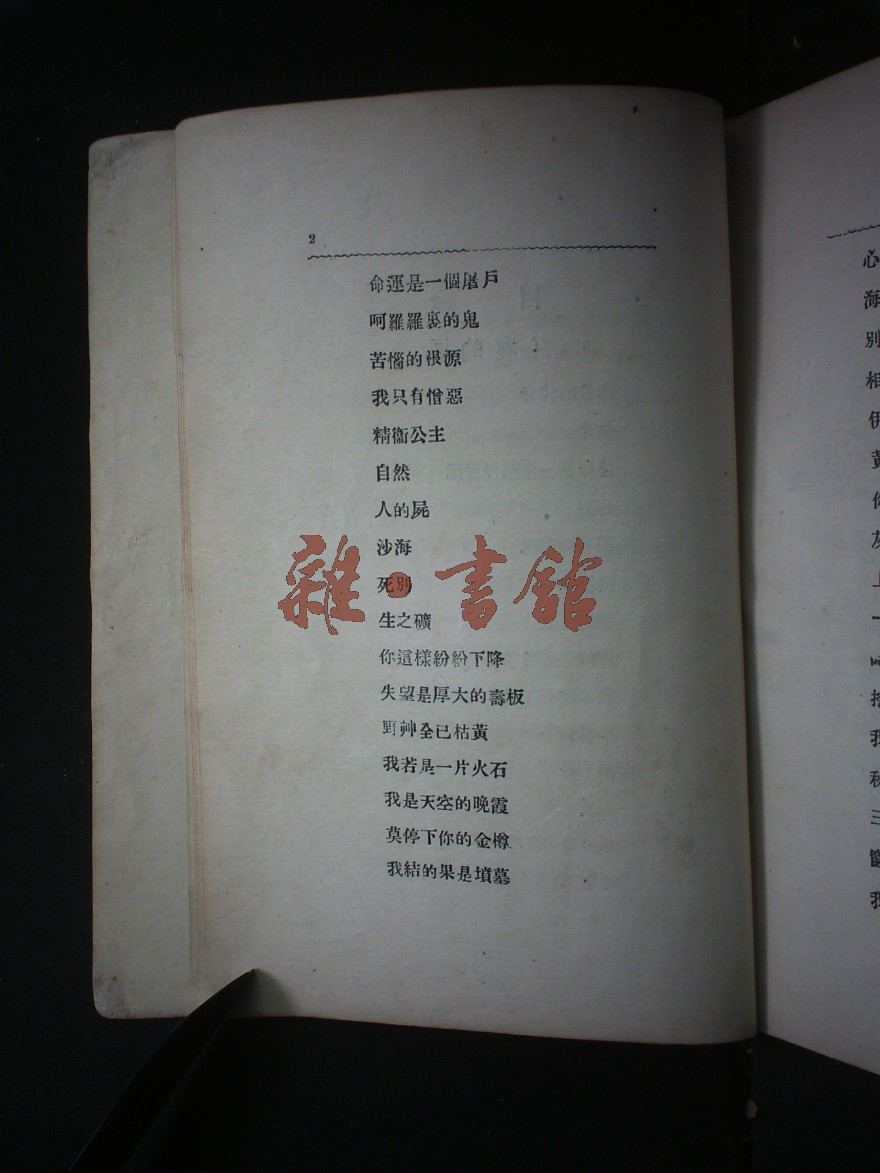 2
命運是一個屠戶
呵羅羅裏的鬼
苦惱的根源
我只有憎惡
精衞公主
自然
人的屍
沙海
死別
生之礦
你這樣紛紛下降
失望是厚大的壽板
野艸全已枯黃
我若是一片火石
我是天空的晚霞
莫停下你的金樽
我結的果是墳墓
雜·書館
心
海
別
相
伊
黃
你
灰
上
一
我
秋
三
我